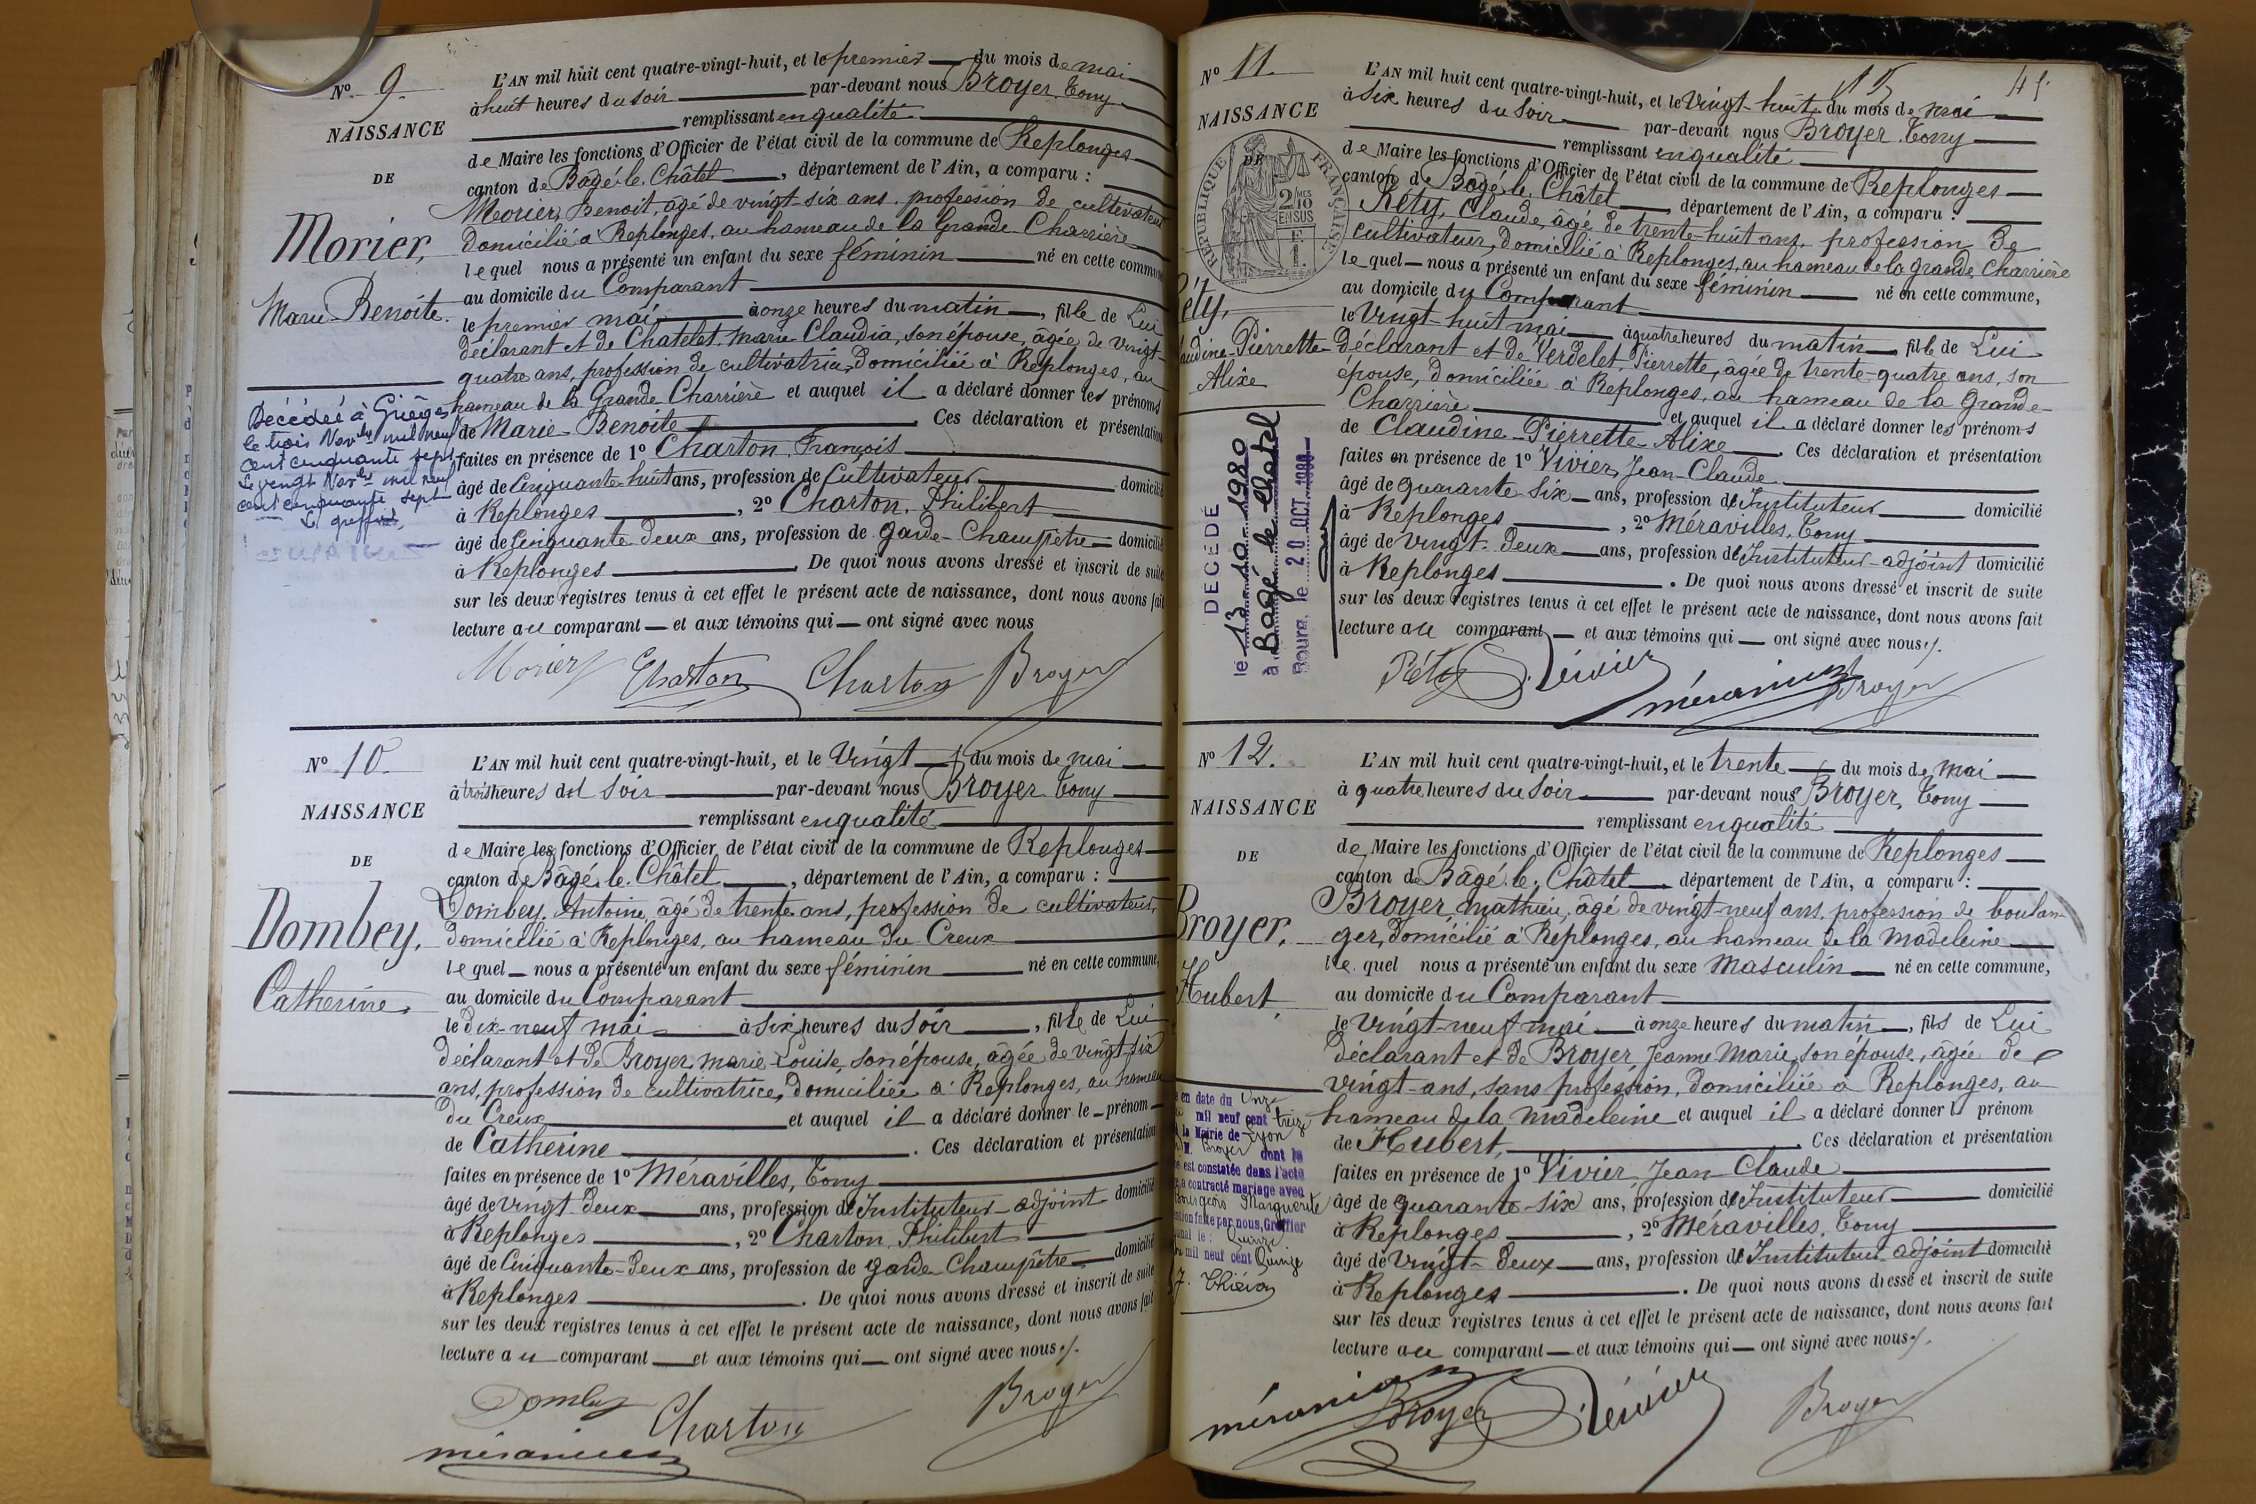 N° 9.
NAISSANCE
DE
Morier,
Marie-Benoite.
L'AN mil huit cent quatre-vingt-huit, et le premier du mois de mai
à huit heures du soir par-devant nous Broyer Tony
remplissant en qualité
de Maire les fonctions d'Officier de l'état civil de la commune de Replonges
canton de Bâgé-le-Châtel, département de l'Ain, a comparu :
Morier, Benoit, âgé de vingt-six ans, profession de cultivateur
domicilié à Replonges, au hameau de la Grande Charrière
lequel nous a présenté un enfant du sexe féminin né en cette commune
au domicile du Comparant
le premier mai à onze heures du matin, fille de Lui
déclarant et de Chatelet Marie Claudia, son épouse, âgée de vingt-
quatre ans, profession de cultivatrice, domiciliée à Replonges, au
hameau de la Grande Charrière et auquel il a déclaré donner les prénoms
de Marie-Benoite. Ces déclaration et présentation
faites en présence de 1° Charton François
âgé de Cinquante-huit ans, profession de Cultivateur domicilié
à Replonges, 2° Charton, Philibert
âgé de Cinquante deux ans, profession de garde-Champêtre domicilié
à Replonges. De quoi nous avons dressé et inscrit de suite
sur les deux registres tenus à cet effet le présent acte de naissance, dont nous avons fait
lecture au comparant et aux témoins qui ont signé avec nous
Morier Charton Charton Broyer
Décédée à Grièges
le trois Novbre mil neuf
cent cinquante sept
Le vingt Novbre mil neuf
cent cinquante sept
Le greffier,
N° 10.
NAISSANCE
DE
Dombey,
Catherine.
L'AN mil huit cent quatre-vingt-huit, et le vingt du mois de mai
à trois heures du soir par-devant nous Broyer Tony
remplissant en qualité
de Maire les fonctions d'Officier de l'état civil de la commune de Replonges
canton de Bâgé-le-Châtel, département de l'Ain, a comparu :
Dombey, Antoine, âgé de trente ans, profession de cultivateur,
domicilié à Replonges, au hameau du Creux
lequel nous a présenté un enfant du sexe féminin né en cette commune,
au domicile du Comparant
le dix-neuf mai à six heures du soir, fille de Lui
déclarant et de Broyer Marie-Louise, son épouse, âgée de vingt-six
ans, profession de cultivatrice, domiciliée à Replonges, au hameau
du Creux et auquel il a déclaré donner le prénom
de Catherine. Ces déclaration et présentation
faites en présence de 1° Méravilles, Tony
âgé de vingt deux ans, profession d'Instituteur-adjoint domicilié
à Replonges, 2° Charton, Philibert
âgé de Cinquante-deux ans, profession de garde Champêtre domicilié
à Replonges. De quoi nous avons dressé et inscrit de suite
sur les deux registres tenus à cet effet le présent acte de naissance, dont nous avons fait
lecture au comparant et aux témoins qui ont signé avec nous ./.
Dombey Charton Broyer
N° 11.
NAISSANCE
DE
RÉPUBLIQUE FRANÇAISE
2 MES
10
EN SUS
F
1.
Réty,
audine-Pierrette-
Alixe
15 45
L'AN mil huit cent quatre-vingt-huit, et le vingt-huit du mois de mai
à Six heures du Soir par-devant nous Broyer Tony
remplissant en qualité
de Maire les fonctions d'Officier de l'état civil de la commune de Replonges
canton de Bâgé-le-Châtel, département de l'Ain, a comparu :
Réty, Claude, âgé de trente-huit ans, profession de
cultivateur, domicilié à Replonges, au hameau de la grande Charrière
lequel nous a présenté un enfant du sexe féminin né en cette commune,
au domicile du Comparant
le vingt-huit mai à quatre heures du matin, fille de Lui
déclarant et de Verdelet, Pierrette, âgée de trente-quatre ans, son
épouse, domiciliée à Replonges, au hameau de la Grande-
Charrière et auquel il a déclaré donner les prénoms
de Claudine-Pierrette-Alixe. Ces déclaration et présentation
faites en présence de 1° Vivier, Jean-Claude
âgé de quarante Six ans, profession d'Instituteur domicilié
à Replonges, 2° Méravilles, Tony
âgé de vingt-deux ans, profession d'Instituteur-adjoint domicilié
à Replonges. De quoi nous avons dressé et inscrit de suite
sur les deux registres tenus à cet effet le présent acte de naissance, dont nous avons fait
lecture au comparant et aux témoins qui ont signé avec nous ./.
Réty Vivier Broyer
DÉCÉDÉ
le 13-10-1980
à Bâgé le Châtel
Bourg, le 20 OCT. 1980
N° 12.
NAISSANCE
DE
Broyer,
Hubert.
L'AN mil huit cent quatre-vingt-huit, et le trente du mois de mai
à quatre heures du soir par-devant nous Broyer, Tony
remplissant en qualité
de Maire les fonctions d'Officier de l'état civil de la commune de Replonges
canton de Bâgé-le-Châtel, département de l'Ain, a comparu :
Broyer Mathieu, âgé de vingt-neuf ans, profession de boulan-
ger, domicilié à Replonges, au hameau de la Madeleine
lequel nous a présenté un enfant du sexe masculin né en cette commune,
au domicile du Comparant
le vingt-neuf mai à onze heures du matin, fils de Lui
déclarant et de Broyer Jeanne Marie, son épouse, âgée de
vingt-ans, sans profession, domiciliée à Replonges, au
hameau de la Madeleine et auquel il a déclaré donner le prénom
de Hubert. Ces déclaration et présentation
faites en présence de 1° Vivier, Jean Claude
âgé de quarante-six ans, profession d'Instituteur domicilié
à Replonges, 2° Méravilles, Tony
âgé de vingt-deux ans, profession d'Instituteur adjoint domicilié
à Replonges. De quoi nous avons dressé et inscrit de suite
sur les deux registres tenus à cet effet le présent acte de naissance, dont nous avons fait
lecture au comparant et aux témoins qui ont signé avec nous ./.
Broyer Vivier Broyer
en date du Onze
mil neuf cent treize
la Mairie de Lyon
M. Broyer dont la
est constatée dans l'acte
a contracté mariage avec
Marguerite
faite par nous, Greffier
le : quinze
mil neuf cent Quinze